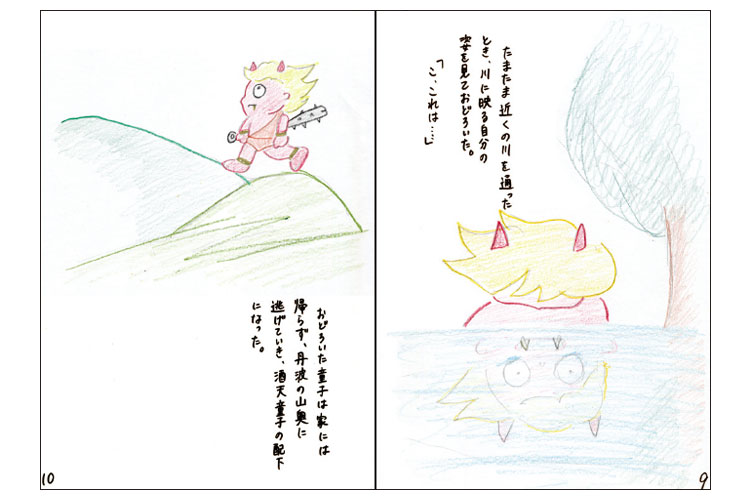 たまたま近くの川を通った
とき、川に映る自分の
姿を見ておどろいた。
「こ、これは…」
9
おどろいた童子は家には
帰らず、丹波の山奥に
逃げていき、酒天童子の配下
になった。
10